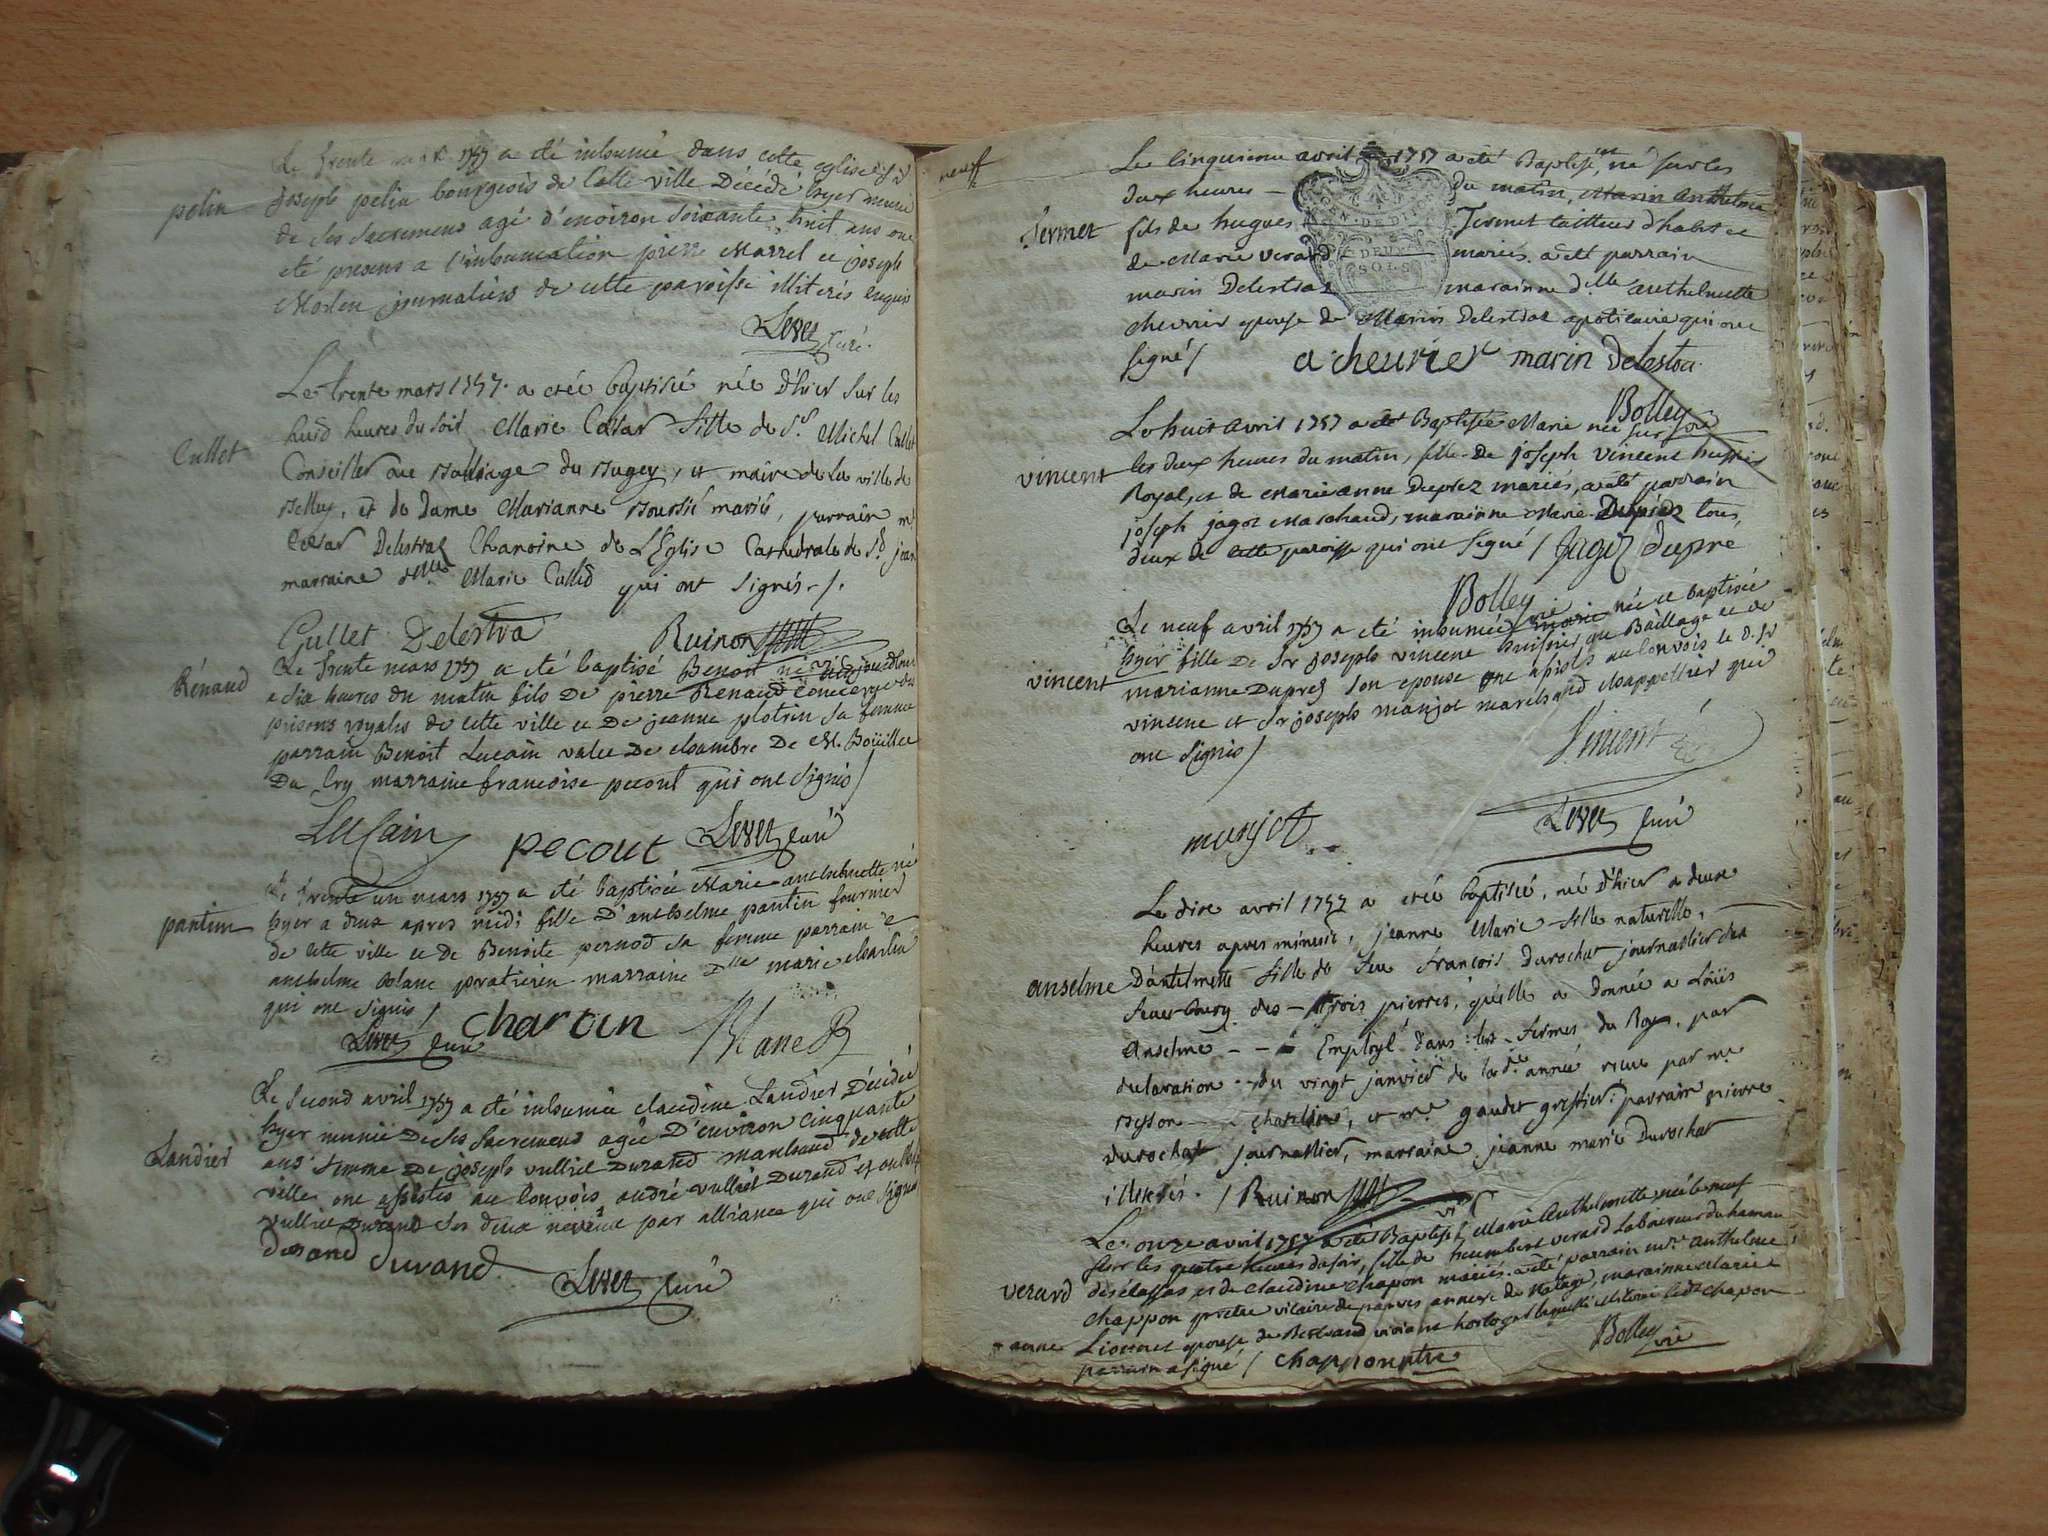 Le trente mars 1757 a été inhumé dans cette eglise Sr
pelin
joseph pelin bourgeois de cette ville Décédé hyer munie
de ses sacremens agé d'environ soixante huit ans ont
eté presens a l'inhumation pierre Marrel et joseph
journaliers de cette paroisse illiterés enquis
Levet curé
Le trente mars 1757. a etée baptisée née d'hier sur les
Cullet
huid heures du soit Marie César fille de Sr. Michel Cullet
Conseiller au Bailliage du Bugey, et maire de la ville de
Belley, et de Dame Marianne mariés, parrain mr
César Delestraz Chanoine de L'Eglise Cathedrale de St. jean
marraine dlle Marie Culled qui ont signés./.
Cullet Delestra Ruinon
Le trente mars 1757 a été baptisé Benoit né
Rénaud
a six heures du matin fils de pierre Renaud concierge des
prisons royales de cette ville et de jeanne plotrin sa femme
parrain Benoit Lucain valet de chambre de M. Boüillet
Du Cry marraine francoise pecout qui ont signés /
LuCain pecout Levet curé
Le trente un mars 1757 a été baptisée Marie anthelmette né
pantin
hyer a deux apres midi fille D'anthelme pantin fournier
de cette ville et de Benoite pernod sa femme parrain
anthelme blanc praticien marraine Dlle marie charlin
qui ont signés /
Levet curé chartin Blanc
Le second avril 1757 a été inhumée claudine Landier Décédée
Landier
hyer munie de ses sacremens agée D'environ cinquante
ans femme de joseph vulliet Durand marchand de cette
ville ont assistés au convois andré vulliet Durand et
vulliet Durand ses deux neveux par alliance qui ont signés
durand durand.
Levet curé
neuf
Le cinquieme avril 1757 a été Baptisé, né sur les
deux heures du matin, Marin Anthelme
fermet
fils de hugues fermet tailleur d'habit et
GEN. DE DIJON
DEUX
SOLS
de Marie verard mariés. a été parrain
marin Delestraz marainne dlle anthelmette
chevrier epouse de Marin Delestraz apoticaire qui ont
signé / a cheurier marin Delestra
Bolley vié
Le huit avril 1757 a été Baptisée Marie née sur
vincent
les deux heures du matin, fille de joseph vincent huissier
Royal, et de marie anne Duprez mariés, a été parrain
joseph jagot Marchand, marainne Marie Dupréz tous
deux de cette paroisse qui ont signé / Jagot dupré
Bolley vié
Le neuf avril 1757 a été inhumée marie née et baptisée
vincent
hyer fille de Sr joseph vincent huissier au Bailliage et de
marianne Duprez son epouse ont assistés au convois le d. Sr
vincent et Sr joseph manjot marchand chappellier qui
ont signés /
Vincent
manjot
Levet curé
Le dix avril 1757 a etée baptisée, née d'hier a deux
heures apres minuit, jeanne Marie fille naturelle,
anselme
D'antelmette fille de feu François Durochat journallier des
des - trois pierres, qu'elle a donnée a Loüis
Anselme - - Employé dans les fermes du Roy, par
declaration du vingt janvier de lad.e année recue par me
chatelain, et me gaudet greffier: parrain pierre
durochat journallier, marraine jeanne marie Durochat
illiterés. / Ruinon
vic
Le onze avril 1757 a été Baptisé Marie Anthelmette née le neuf
sur les quatre heures du soir, fille de heumbert verard Laboureur du hamau
verard
d'ecllassas et de claudine chapon mariés. a été parrain mre. anthelme
chappon pretre vicaire de parves annexe de Natage, marainne Marie
anne
Lionnet epouse de Bertrand viviant horloger laquelle illiterée led.t chapon
parrain a signé / chappon ptre
Bolley vié